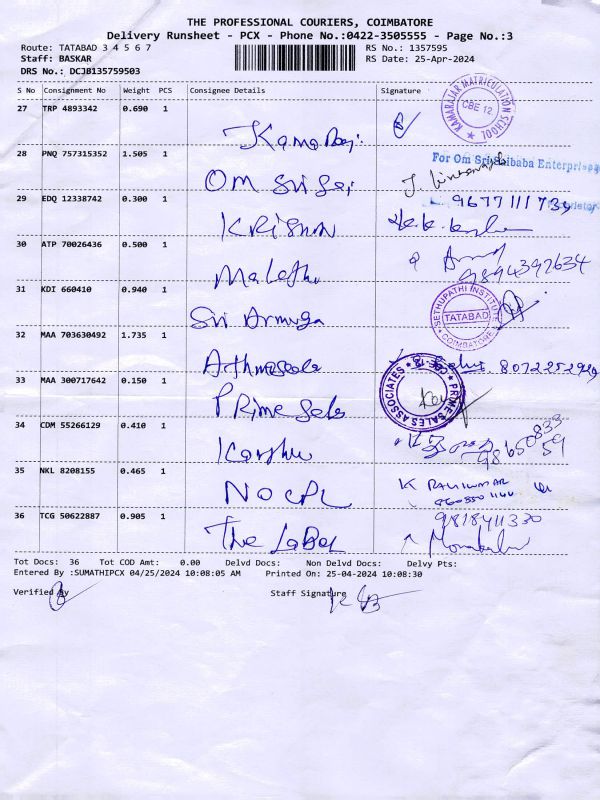 THE PROFESSIONAL COURIERS, COIMBATORE
Delivery Runsheet - PCX - Phone No.:0422-3505555 - Page No.:3
Route: TATABAD 3 4 5 6 7 RS No.: 1357595
Staff: BASKAR RS Date: 25-Apr-2024
DRS No.: DCJB135759503
S No Consignment No Weight PCS Consignee Details Signature
27 TRP 4893342 0.690 1
KAMARAJAR MATRICULATION SCHOOL CBE 12
28 PNQ 757315352 1.505 1 Om Sri Sai
For Om Sri Saibaba Enterprises
29 EDQ 12338742 0.300 1 Krishna 9677111739
30 ATP 70026436 0.500 1 9894392634
31 KDI 660410 0.940 1 Sri Armuga
SETHUPATHI INSTITUTE TATABAD COIMBATORE
32 MAA 703630492 1.735 1
33 MAA 300717642 0.150 1 Prime Sales
PRIME SALES ASSOCIATES CBE-12
34 CDM 55266129 0.410 1
35 NKL 8208155 0.465 1 NO CPL
K
36 TCG 50622887 0.905 1 The Label 9818411330
Tot Docs: 36 Tot COD Amt: 0.00 Delvd Docs: Non Delvd Docs: Delvy Pts:
Entered By :SUMATHIPCX 04/25/2024 10:08:05 AM Printed On: 25-04-2024 10:08:30
Verified By Staff Signature